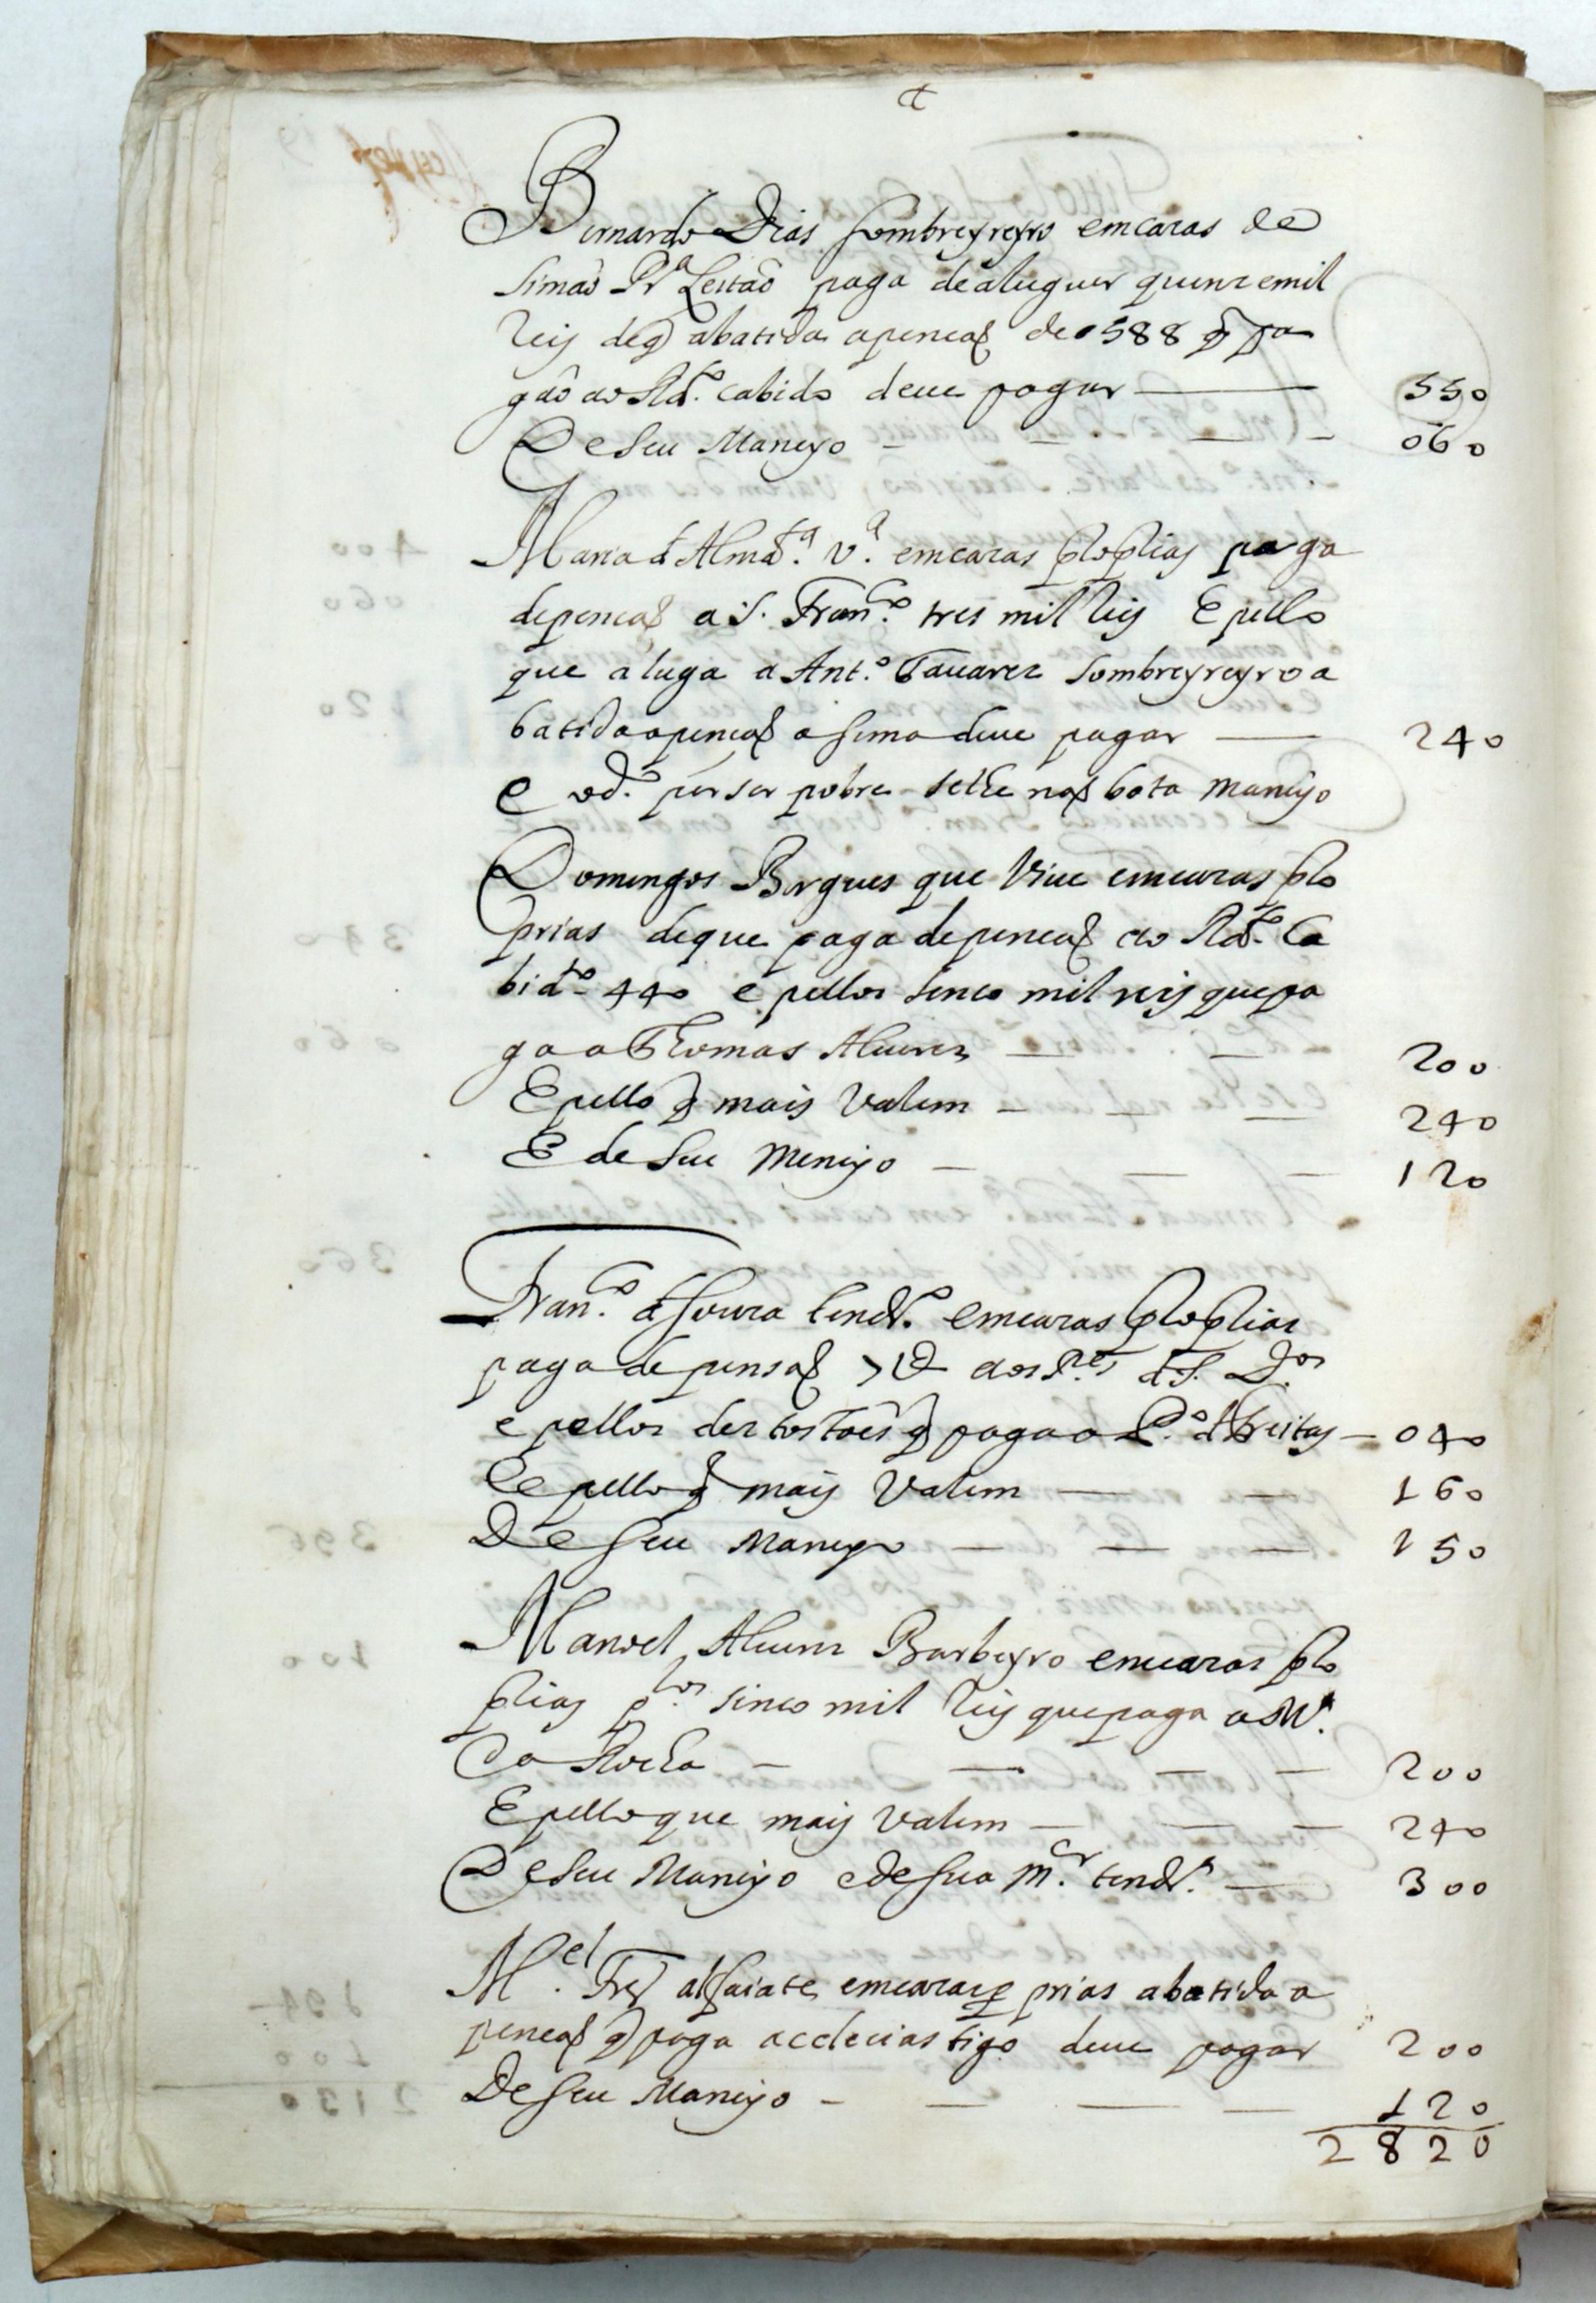 Bernardo Dias sombreyreyro em cazas de
simaõ Prª Leitaõ paga de aluguer quinze mil
reis de q abatida a pencaõ de 588 q pa
gaõ ao Rdº. cabido deve pagar — 550
De seu Maneyo — 060
Maria d Almdª. vª. em cazas proprias paga
de pencaõ a S. Franᶜᵒ. tres mil reis E pello
que aluga a Antº. Tauarez sombreyreyro a
batida a pencaõ asima deue pagar — 240
e por ser pobre se lhe naõ bota maneyo
Domingos Borgues que Viue em cazas pro
prias de que paga de pencaõ ao Rdº. Ca
bidº 440 e pellos sinco mil reis que pa
ga a Thomas Aluarez — 200
E pello q mais Valem — 240
E de seu Meneyo — 120
Franᶜᵒ. d Souza tendrº. em cazas proprias
paga de pensaõ aos Pᵉˢ d S. Dᵒˢ
e pellos dez tostoẽs q paga a Pº. d Freitas — 040
E pello q mais Valem — 160
De seu Maneyo — 150
Manoel Aluarez Barbeyro em cazas pro
prias pˡᵒˢ sinco mil reis que paga a Mᵉˡ.
da Rocha — 200
E pello que mais Valem — 240
De seu Maneyo e de sua mᵉʳ. tendrª. — 300
Mᵉˡ. Frz alfaiate em cazas p prias abatida a
pencaõ q paga a eclesiastigo deue pagar 200
De seu Maneyo — 120
2820